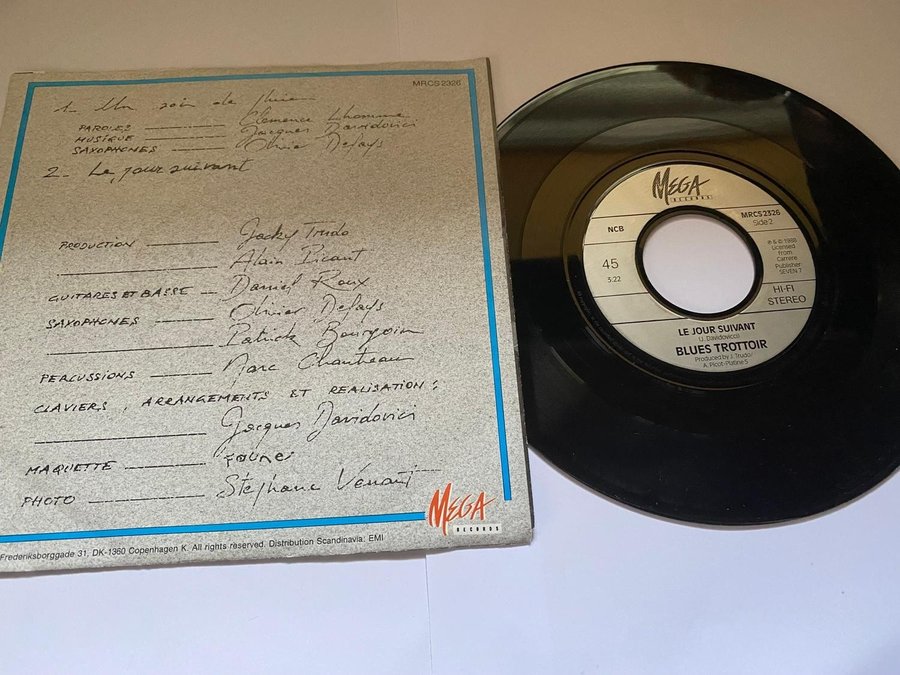 MRCS 2326
1- Un soir de pluie
PAROLES Clemence Lhomme
MUSIQUE Jacques Davidovici
SAXOPHONES Olivier Defays
2- Le jour suivant
PRODUCTION Jacky Trudo
Alain Picaut
GUITARES ET BASSE Daniel Roux
SAXOPHONES Olivier Defays
Patrick Bourgoin
PERCUSSIONS Marc Chanteau
CLAVIERS, ARRANGEMENTS ET REALISATION:
Jacques Davidovici
MAQUETTE
PHOTO Stephane
MEGA
RECORDS
Frederiksborggade 31, DK-1360 Copenhagen K. All rights reserved. Distribution Scandinavia: EMI
MEGA
RECORDS
NCB
MRCS 2326
Side 2
45
3:22
℗ & © 1988
Licensed
from
Carrere
Publisher:
SEVEN 7
HI-FI
STEREO
LE JOUR SUIVANT
(J. Davidovicci)
BLUES TROTTOIR
Produced by J. Trudo/
A. Picot-Platine 5